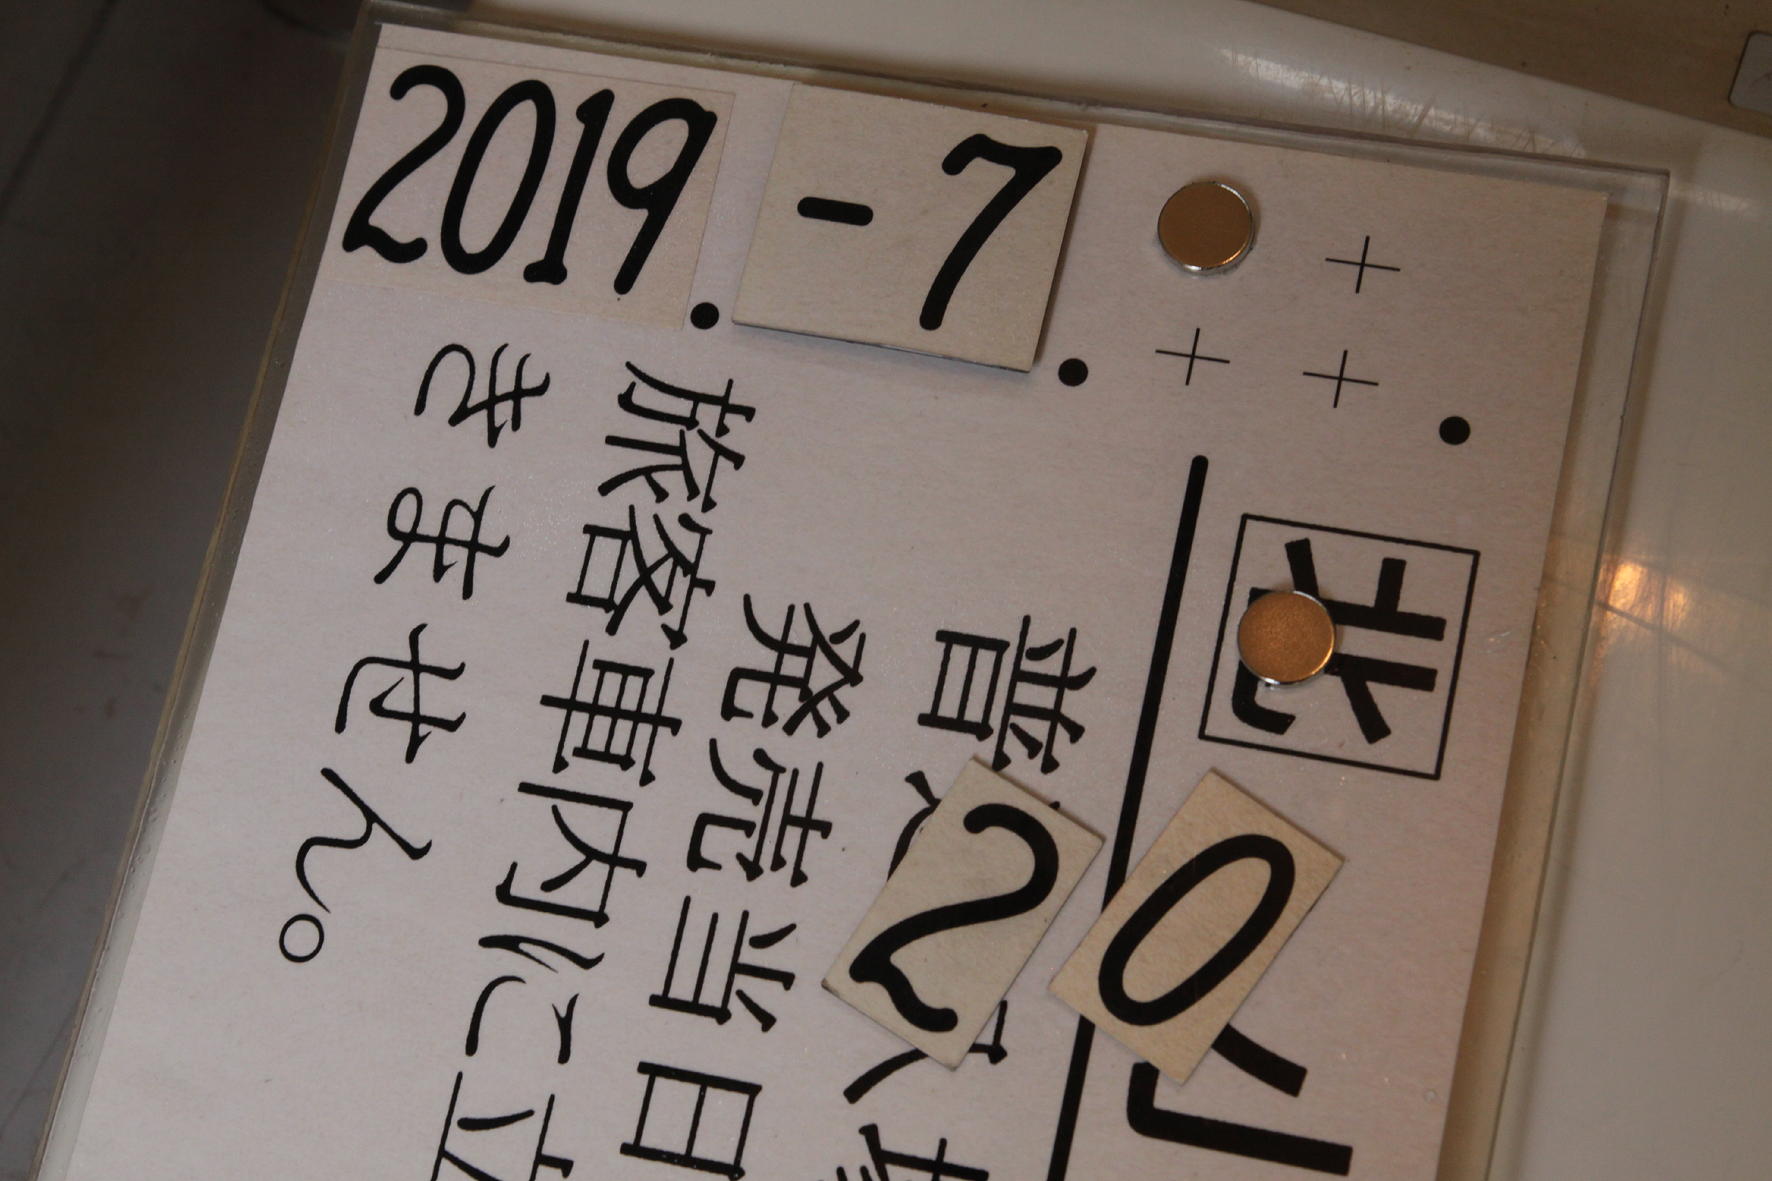 2019.-7.
北
0
2
普
発売当日
旅客車内に立
きません。